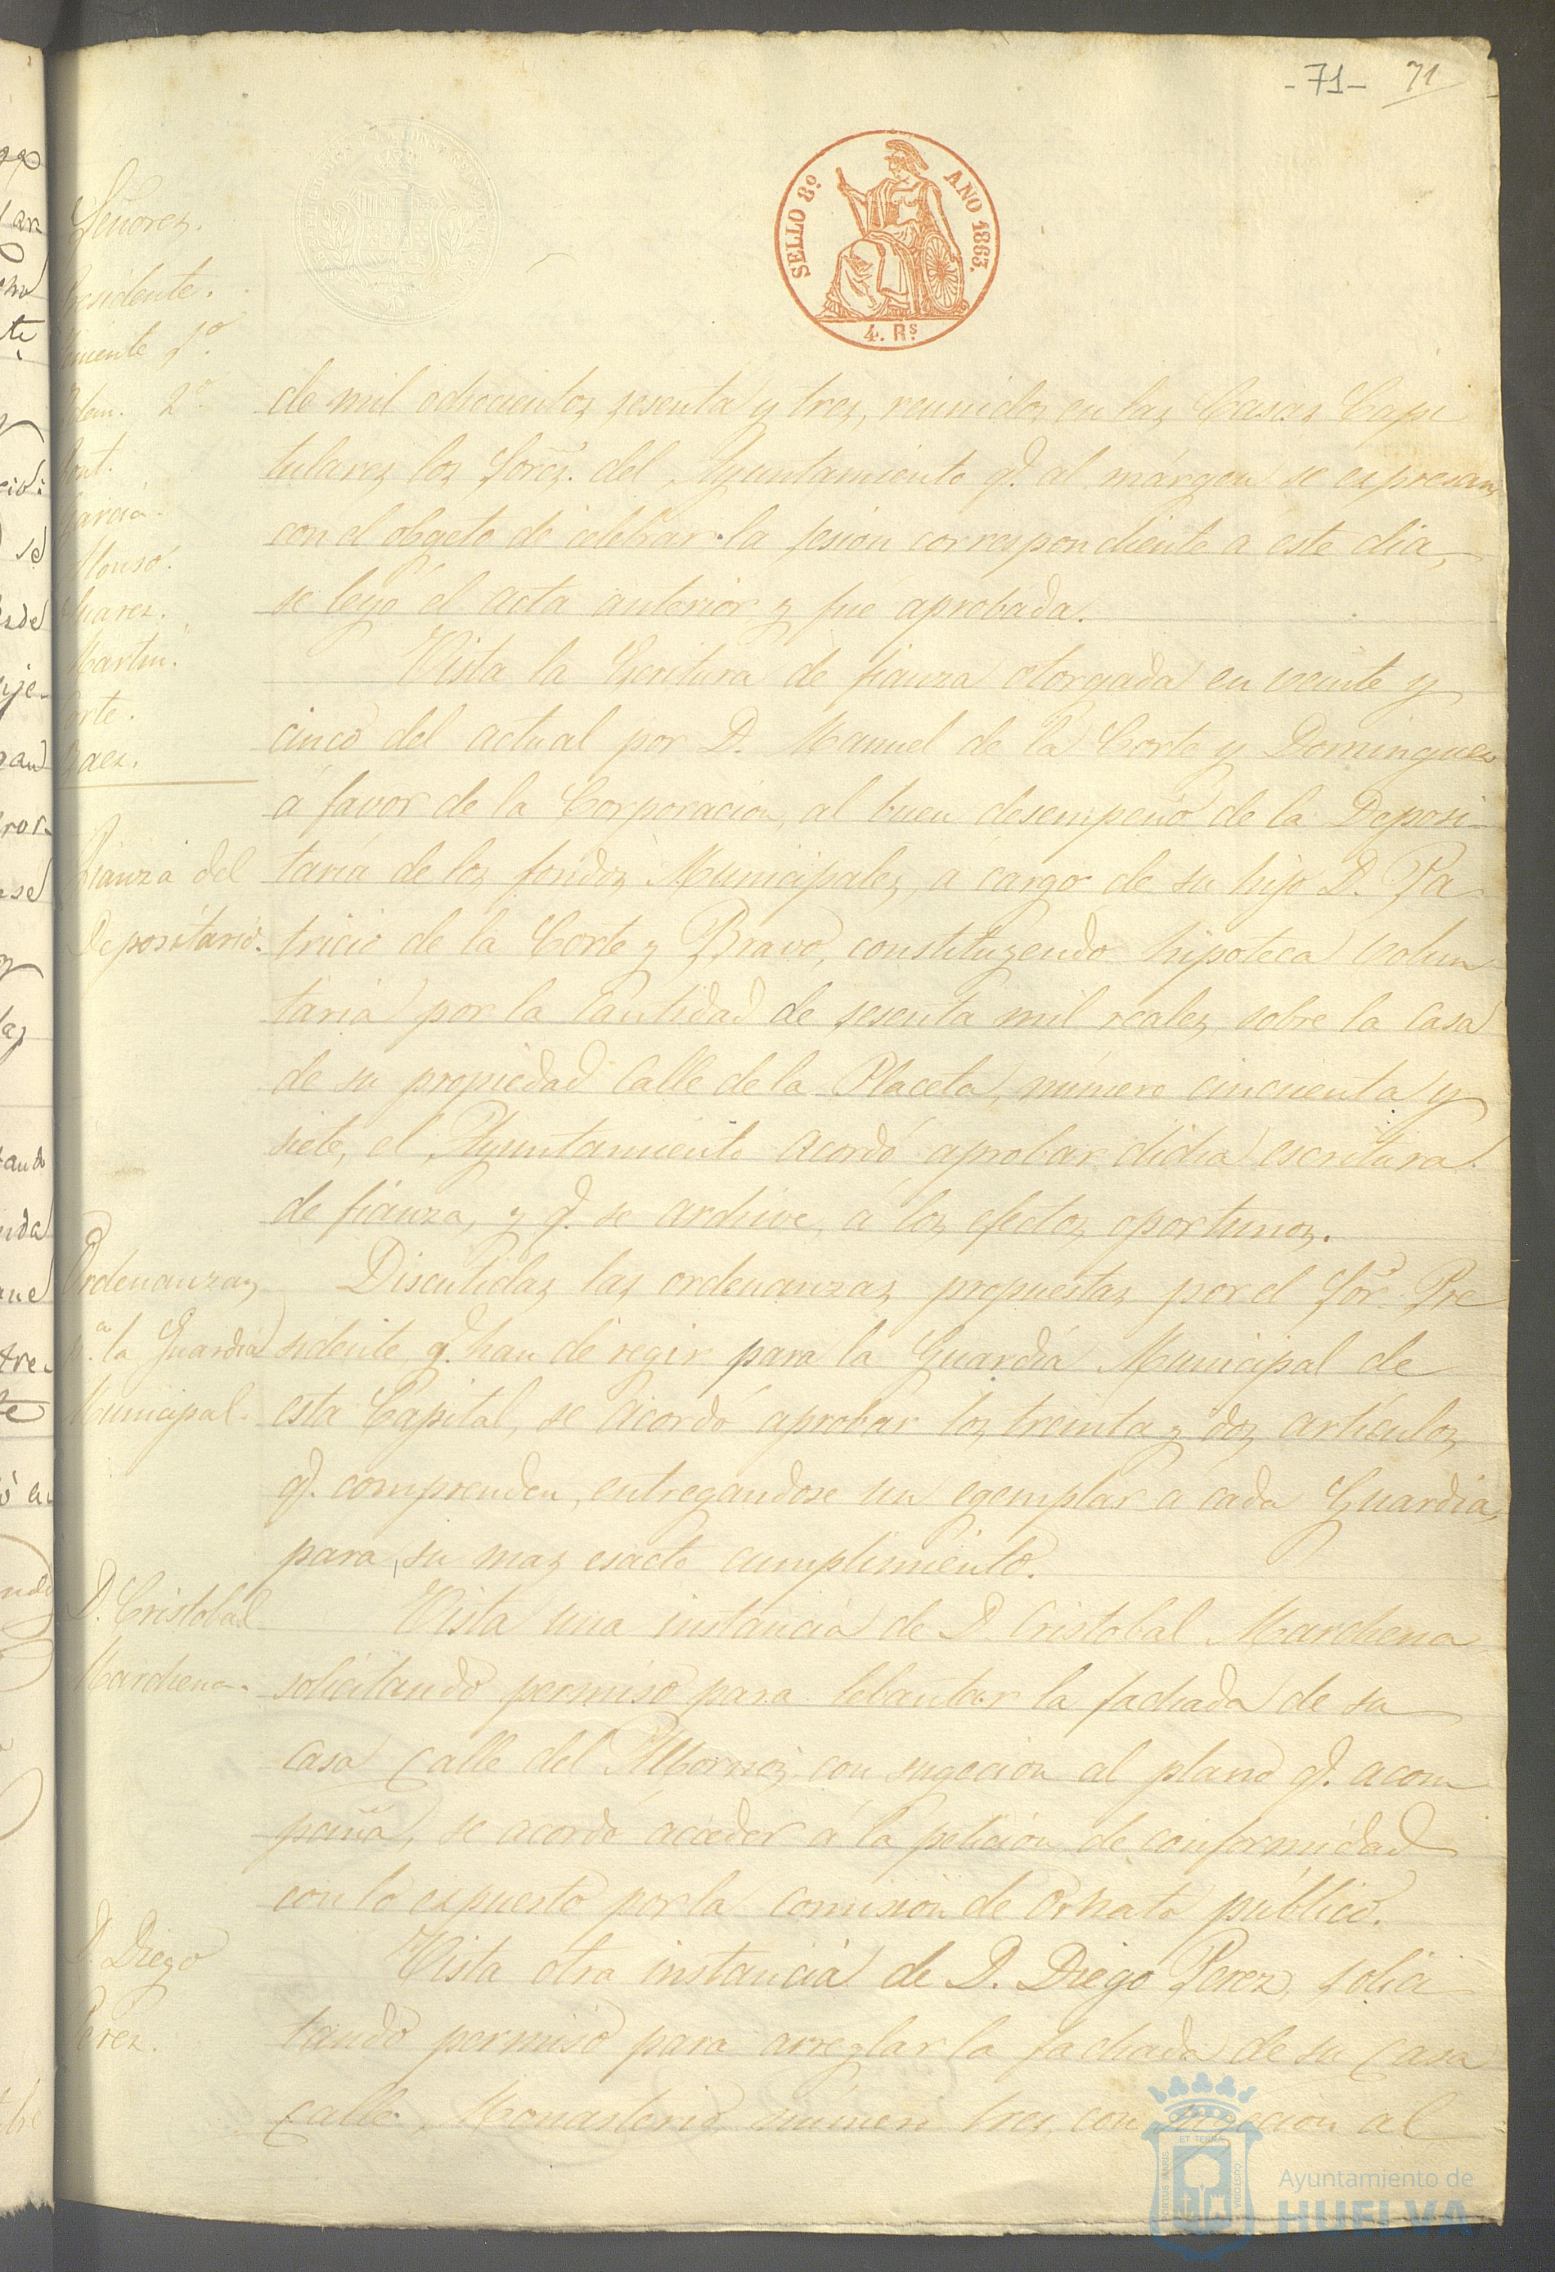 -71- 71
SELLO 8º AÑO 1863.
4. Rs
Señores.
Presidente.
Teniente 1º
Idem. 2º
Font.
Garcia.
Alonso.
Suarez.
Martin.
Corte.
Saez.
de mil ochocientos sesenta y tres, reunidos en las Casas Capi
tulares los Sores. del Ayuntamiento q. al márgen se espresan,
con el obgeto de celebrar la sesion correspondiente a este dia,
se leyó el acta anterior y fué aprobada.
Fianza del
Depositario.
Vista la Escritura de fianza otorgada en veinte y
cinco del actual por D. Manuel de la Corte y Dominguez
á favor de la Corporacion, al buen desempeño de la Deposi-
taría de los fondos Municipales, a cargo de su hijo D. Pa
tricio de la Corte y Bravo, constituyendo hipoteca volun
taria por la Cantidad de sesenta mil reales, sobre la casa
de su propiedad Calle de la Placeta, número cincuenta y
siete, el Ayuntamiento acordó aprobar dicha escritura
de fianza, y q. se archive, á los efectos oportunos.
Ordenanzas
pa. la Guardia
Municipal.
Discutidas las ordenanzas propuestas por el Sor. Pre
sidente q. han de regir para la Guardia Municipal de
esta Capital, se acordó aprobar los treinta y dos artículos
q. comprenden, entregandose un egemplar a cada Guardia,
para su mas esacto cumplimiento.
D. Cristobal
Marchena.
Vista una instancia de D. Cristobal Marchena
solicitando permiso para lebantar la fachada de su
casa Calle del Albornoz con sugecion al plano q. acom
paña, se acordó acceder á la peticion de conformidad
con lo espuesto por la comision de Ornato público.
D. Diego
Perez.
Vista otra instancia de D. Diego Perez, solici
tando permiso para arreglar la fachada de su casa
calle Monasterio número tres, con sugecion al
Ayuntamiento de
HUELVA